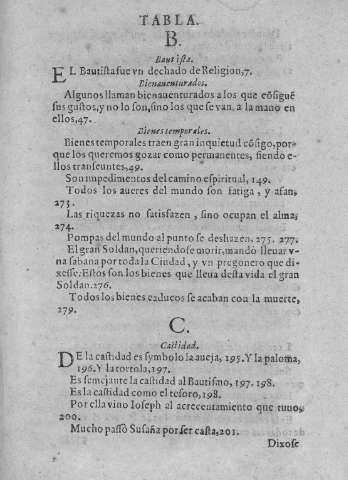 TABLA.
B.
Bautista.
EL Bautista fue vn dechado de Religion,7.
Bienauenturados.
Algunos llaman bienauenturados a los que cōsiguē
sus gustos, y no lo son, sino los que se van a la mano en
ellos,47.
Bienes temporales.
Bienes temporales traen gran inquietud cōsigo, por-
que los queremos gozar como permanentes, siendo e-
llos transeuntes,49.
Son impedimentos del camino espiritual, 149.
Todos los aueres del mundo son fatiga, y afan,
273.
Las riquezas no satisfazen, sino ocupan el alma,
274.
Pompas del mundo al punto se deshazen. 275. 277.
El gran Soldan, queriendose morir, mandò lleuar v-
na sabana por toda la Ciudad, y vn pregonero que di-
xesse: Estos son los bienes que lleua desta vida el gran
Soldan.276.
Todos los bienes caducos se acaban con la muerte,
279.
C.
Castidad.
DE la castidad es symbolo la aueja, 195. Y la paloma,
196. Y la tortola,197.
Es semejante la castidad al Bautismo, 197. 198.
Es la castidad como el tesoro,198.
Por ella vino Ioseph al acrecentamiento que tuuo,
200.
Mucho passò Susaña por ser casta,201.
Dixose